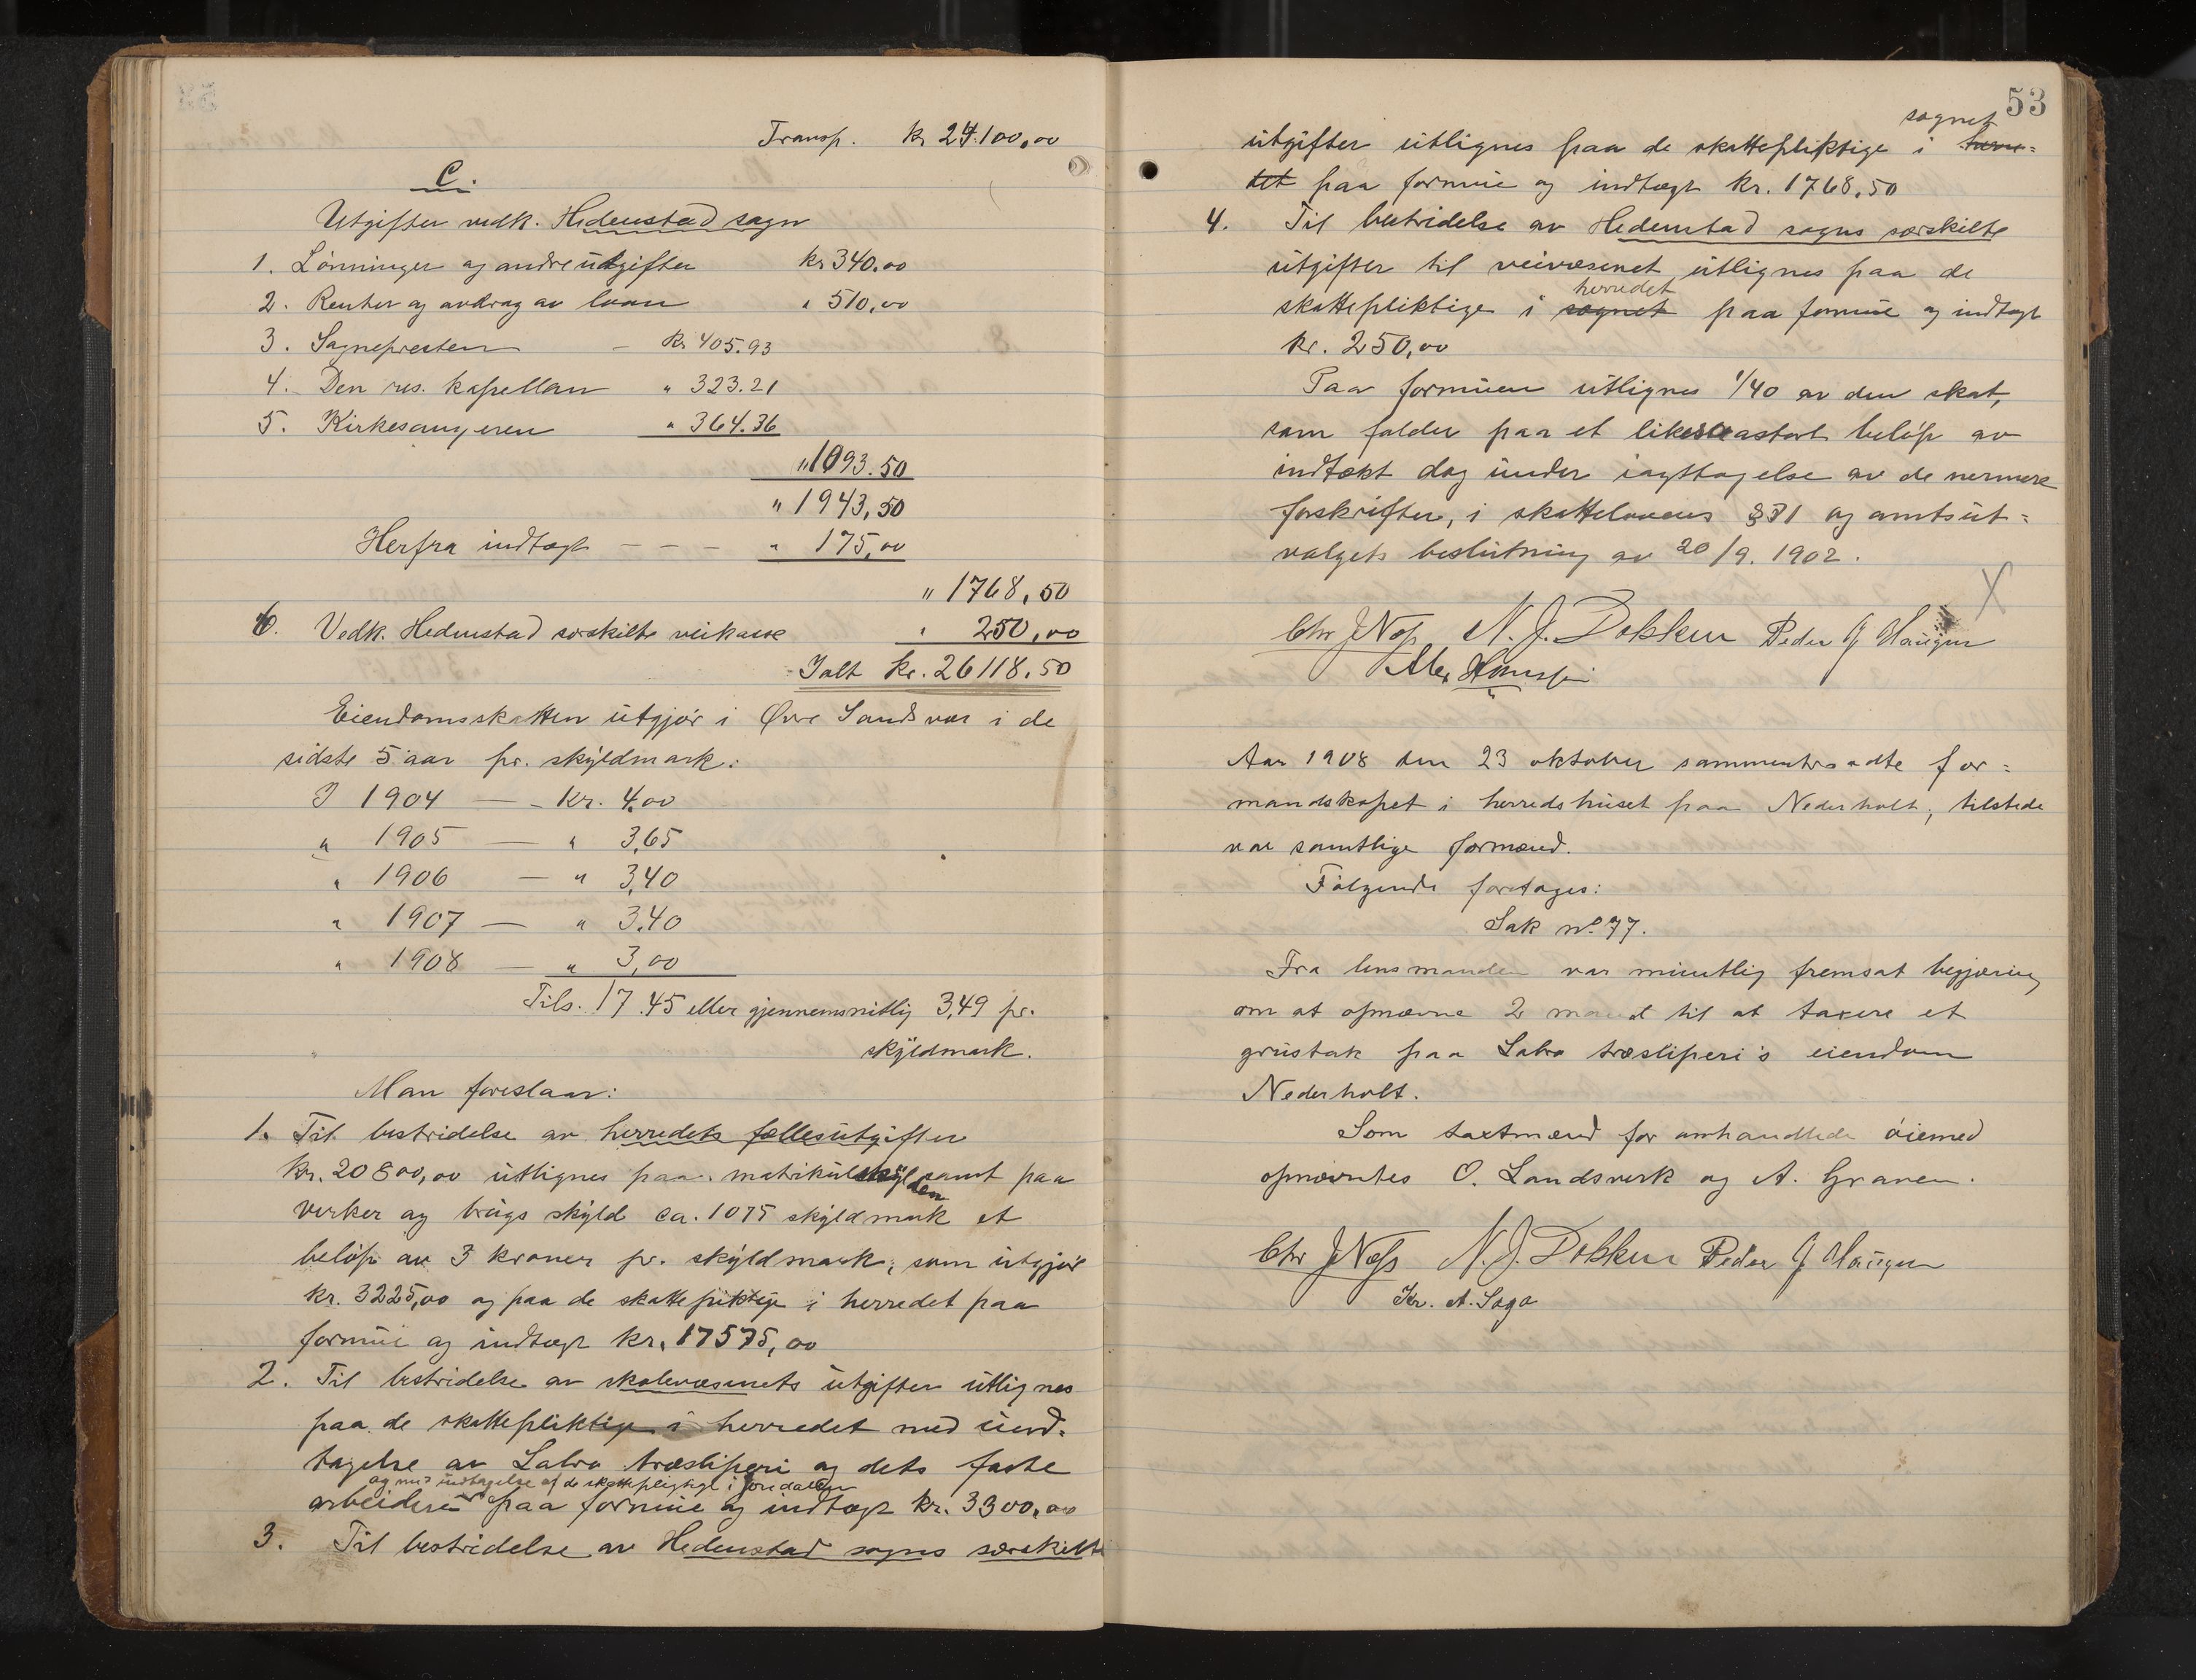 Transp. kr 24.100,00
C.
Utgifter vedk. Hedenstad sogn
1. Lönninger og andre utgifter kr 340,00
2. Renter og avdrag av laan " 510,00
3. Sognepresten — kr 405.93
4. Den res. kapellan " 323.21
5. Kirkesangeren " 364.36
" 1093.50
" 1943,50
Herfra indtægt — — — " 175,00
" 1768,50
6. Vedk. Hedenstad særskilte veikasse " 250,00
Ialt kr. 26118.50
Eiendomsskatten utgjör i Øvre Sandsvær i de
sidste 5 aar pr. skyldmark:
I 1904 — - Kr. 4,00
" 1905 — " 3,65
" 1906 — " 3,40
" 1907 — " 3.40
" 1908 — " 3,00
Tils. 17.45 eller gjennemsnitlig 3,49 pr.
skyldmark.
Man foreslaar:
1. Til bestridelse av herredets fællesutgifter
kr. 20800,00 utlignes paa matrikulskylden samt paa
verker og brugs skyld ca. 1075 skyldmark et
beløp av 3 kroner pr. skyldmark, som utgjør
kr. 3225,00 og paa de skattepliktige i herredet paa
formue og indtægt kr. 17575,00
2. Til bestridelse av skolevæsenets utgifter utlignes
paa de skattepliktige i herredet med und-
tagelse av Labro træsliperi og dets faste
og med undtagelse af de skattepligtige i Jondalen
arbeidere paa formue og indtægt kr. 3300,00
3. Til bestridelse av Hedenstad sogns særskilte
53
sognet
utgifter utlignes paa de skattepliktige i herre=
det paa formue og indtægt kr. 1768,50
4. Til bestridelse av Hedenstad sogns særskilte
utgifter til veivæsenet utlignes paa de
herredet
skattepliktige i sognet paa formue og indtægt
kr. 250,00
Paa formuen utlignes 1/40 av den skat,
som falder paa et likesaastort beløp av
indtækt dog under iagttagelse av de nermere
forskrifter, i skattelovens § 31 og amtsut=
valgets beslutning av 20/9. 1902.
Chr J Næss N. J. Dokken Peder G Haugen
Hansen
Aar 1908 den 23 oktober sammentraadte for=
mandskapet i herredshuset paa Nederholt, tilstede
var samtlige formænd.
Følgende foretages:
Sak no. 77.
Fra lensmanden var muntlig fremsat begjæring
om at opnævne 2 mænd til at taxere et
grustak paa Labro træsliperi's eiendom
Nederholt.
Som taxtmænd for omhandlede öiemed
opnævntes O. Landsverk og A. Graven.
Chr J Næss N. J. Dokken Peder G Haugen
Kr. A. Saga